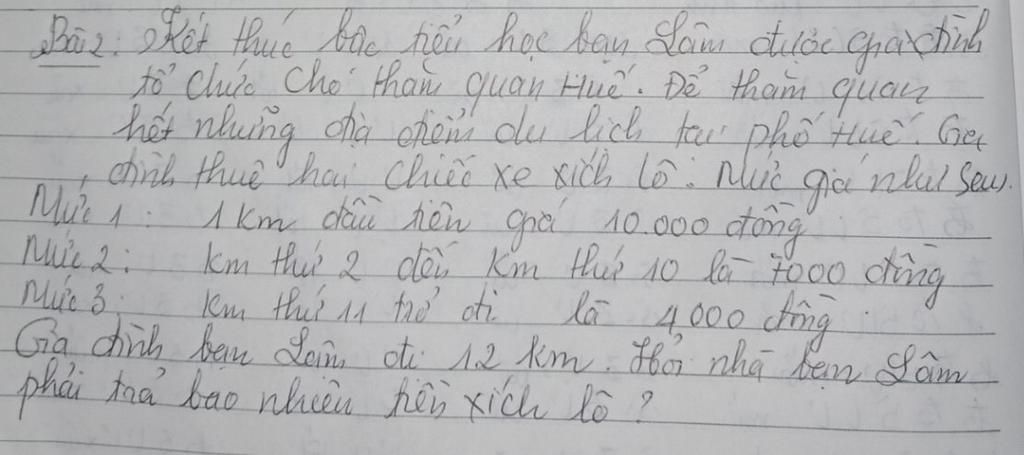 Bài 2: Kết thúc bậc tiểu học bạn Lâm được gia đình
tổ chức cho thăm quan Huế. Để thăm quan
hết những địa điểm du lịch tại phố Huế. Gia
đình thuê hai chiếc xe xích lô. Mức giá như sau.
Mức 1: 1 km đầu tiên giá 10.000 đồng
Mức 2: km thứ 2 đến km thứ 10 là 7000 đồng
Mức 3: km thứ 11 trở đi là 4,000 đồng.
Gia đình bạn Lâm đi 12 km. Hỏi nhà bạn Lâm
phải trả bao nhiêu tiền xích lô?